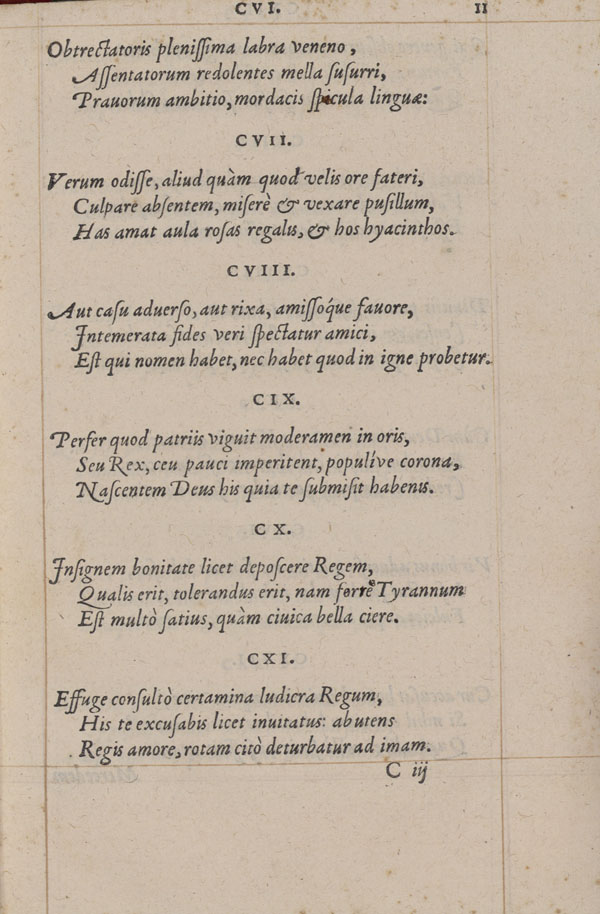 CVI. 11
Obtrectatoris pleniſſima labra veneno,
Aſſentatorum redolentes mella ſuſurri,
Prauorum ambitio, mordacis ſpicula linguæ:
CVII.
Verum odiſſe, aliud quàm quod velis ore fateri,
Culpare abſentem, miſerè & vexare puſillum,
Has amat aula roſas regalis, & hos hyacinthos.
CVIII.
Aut caſu aduerſo, aut rixa, amiſſóque fauore,
Intemerata fides veri ſpectatur amici,
Eſt qui nomen habet, nec habet quod in igne probetur.
CIX.
Perfer quod patriis viguit moderamen in oris,
Seu Rex, ceu pauci imperitent, populíve corona,
Naſcentem Deus his quia te ſubmiſit habenis.
CX.
Inſignem bonitate licet depoſcere Regem,
Qualis erit, tolerandus erit, nam ferre Tyrannum
Eſt multò ſatius, quàm ciuica bella ciere.
CXI.
Effuge conſultò certamina ludicra Regum,
His te excuſabis licet inuitatus: abutens
Regis amore, rotam citò deturbatur ad imam.
C iij